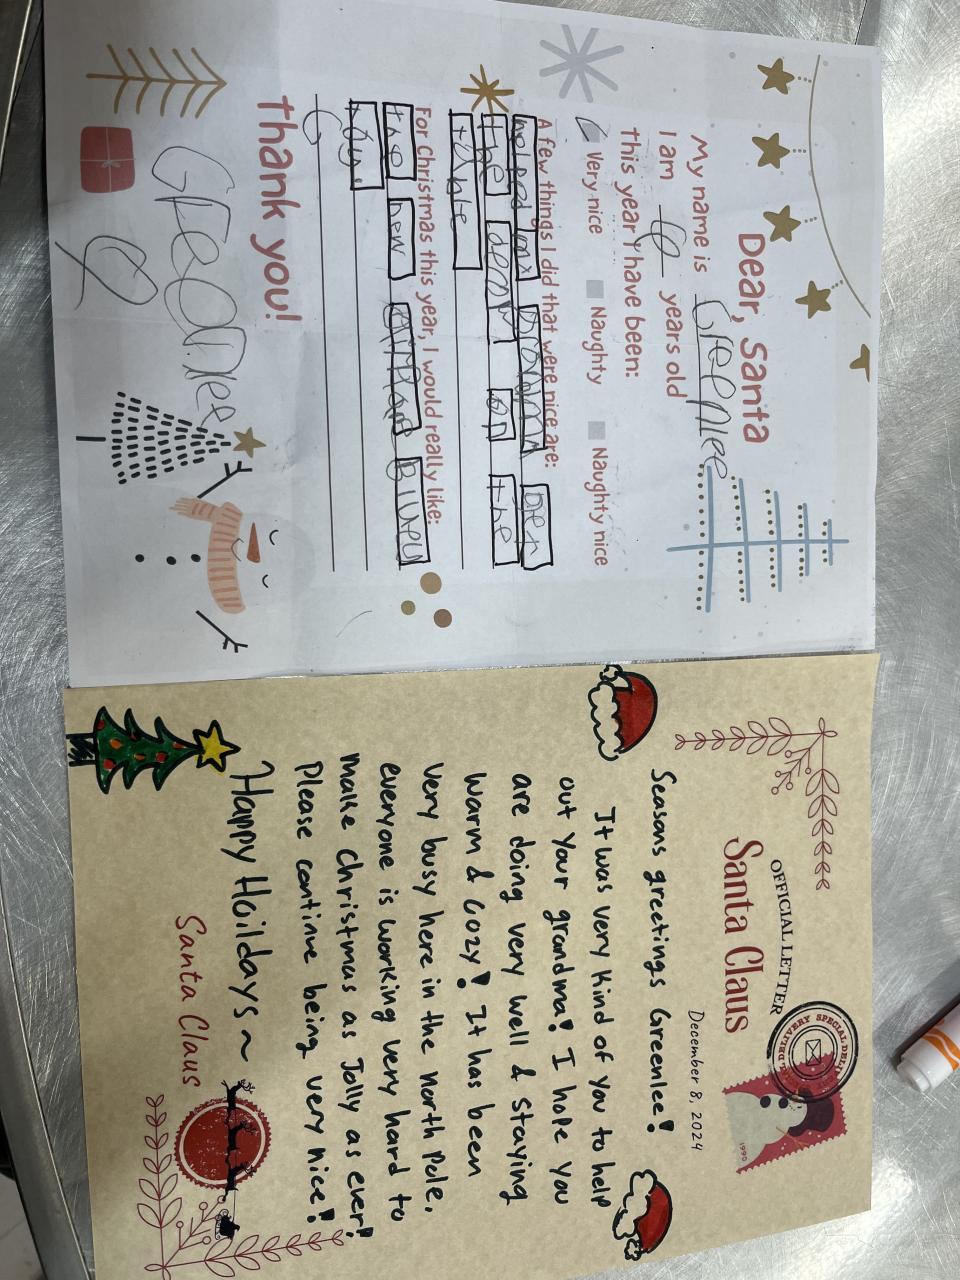 Dear, Santa
My name is Greenlee
I am years old
this year I have been:
Very nice Naughty Naughty nice
A few things I did that were nice are:
helped mx
the on the
table
For Christmas this year, I would really like:
the new Bluey
toy.
thank you!
Greenlee
OFFICIAL LETTER
Santa Claus
DELIVERY SPECIAL DELI
1990
December 8, 2024
Seasons greetings Greenlee!
It was very kind of you to help
out your grandma! I hope you
are doing very well & staying
warm & cozy! It has been
very busy here in the North Pole.
everyone is working very hard to
make Christmas as Jolly as ever!
Please continue being very nice!
Happy Hoildays ~
Santa Claus